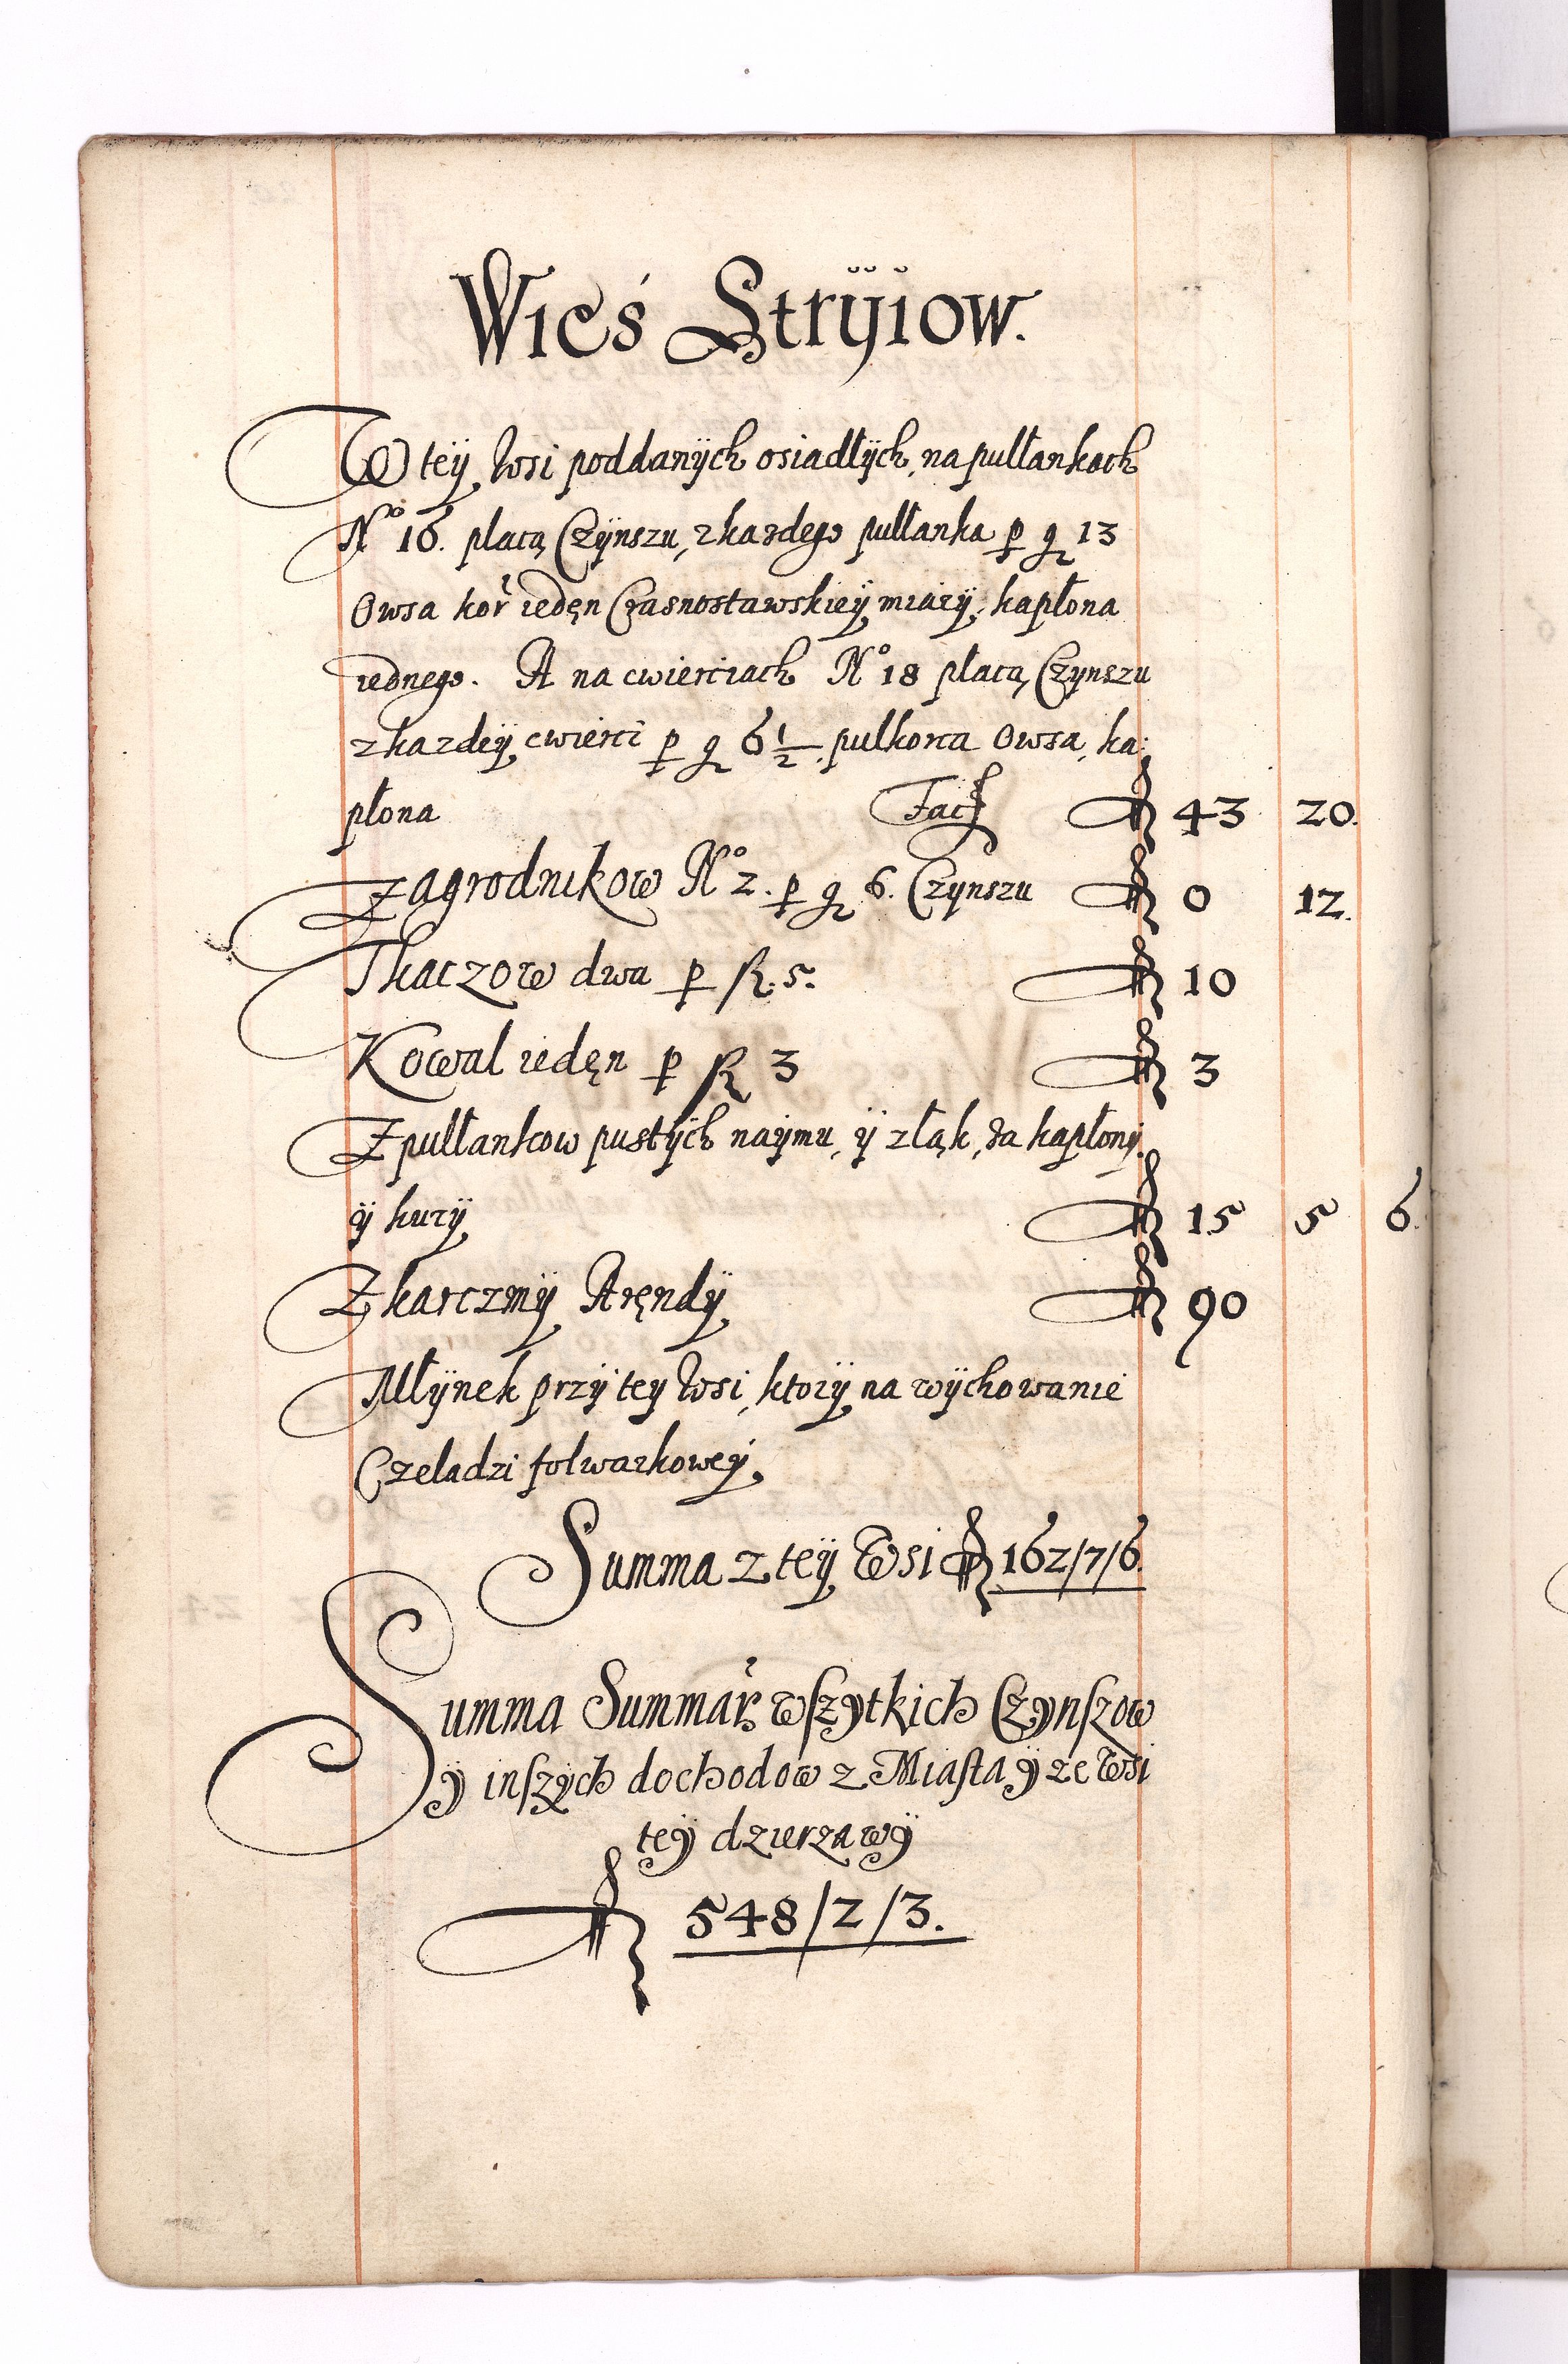 Wieś Strÿiow.
W teÿ wsi poddanÿch osiadłÿch, na pułłankach
Nº 16. płacą Czÿnszu, z kazdego pułłanka p g 13
Owsa kor iedęn Crasnostawskieÿ miarÿ, kapłona
iednego. A na cwierciach Nº 18 płacą Czynszu
z kazdeÿ cwierci p g 6 1/2. pulkorca Owsa, ka:
płona Fac f 43 20.
Zagrodnikow Nº 2. p g 6. Czynszu f 0 12.
Tkaczow dwa p f. 5. f 10
Kowal iedęn p f 3 f 3
Z pułłankow pustÿch naÿmu, ÿ z łąk, za kapłonÿ
ÿ kurÿ f 15 5 6.
Z karczmÿ Aręndÿ f 90
Młÿnek przÿ teÿ wsi, ktorÿ na wÿchowanie
Czeladzi folwarkoweÿ.
Summa z teÿ Wsi f 162/7/6.
Summa Summar wszytkich Czynszow
ÿ inszÿch dochodow z Miasta ÿ ze Wsi
teÿ dzierzawÿ
f 548/2/3.